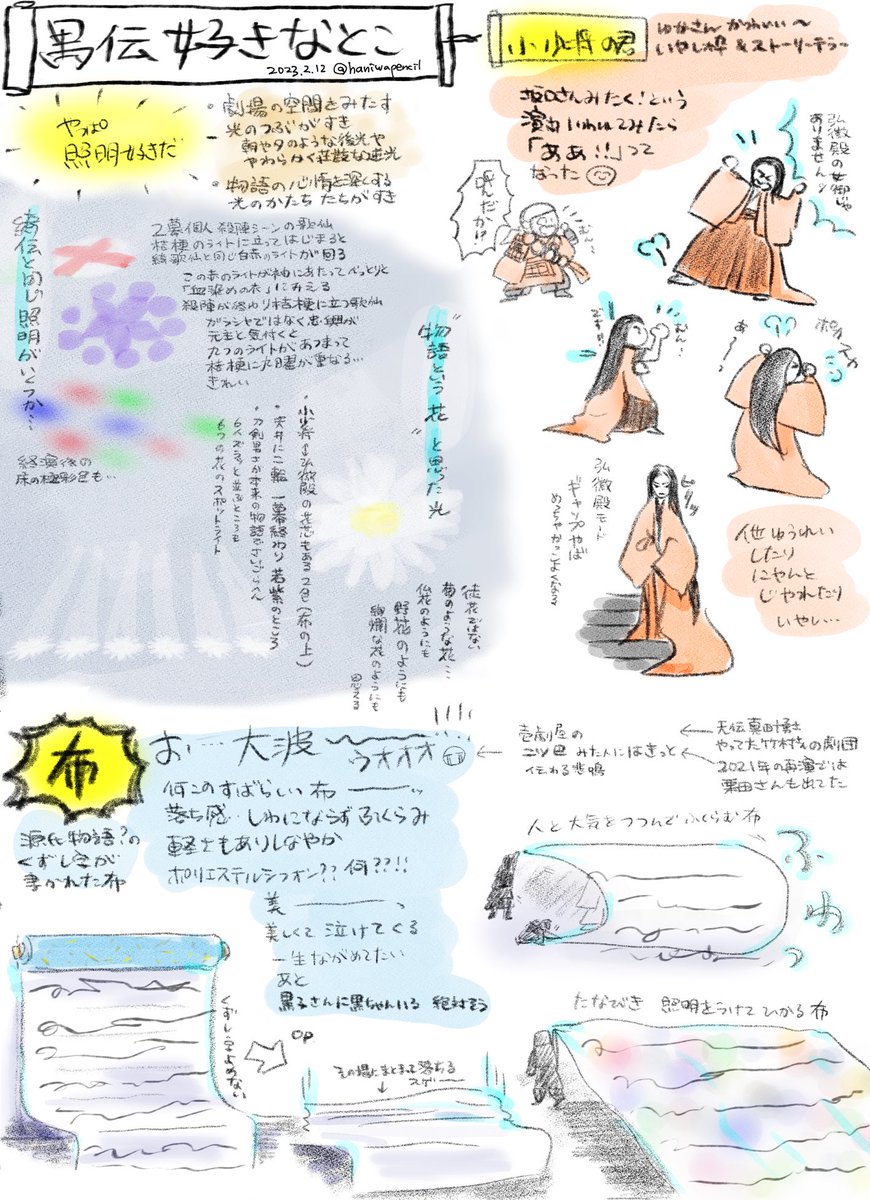 禺伝 好きなとこ
2023.2.12 @haniwapencil
小少将の君
ゆなさん かわいい〜
いやし枠 & ストーリーテラー
やっぱ
照明好きだ
・劇場の空間をみたす
光のつぶがすき
朝や夕のような後光や
やわらかく荘厳な逆光
・物語の心情を深くする
光のかたちたちがすき
坂口さんみたく!という
演出いわれてみたら
「ああ!!」って
なった
弘徽殿の女御じゃ
ありません!
呪だか!?
綺伝と同じ照明がいくつか…
2幕個人殺陣シーンの歌仙
桔梗のライトに立ってはじまると
綺歌仙と同じ白赤のライトが回る
この赤のライトが袖にあたってべっとりと
「血染めの衣」にみえる
殺陣が終わり桔梗に立つ歌仙
ガラシャではなく忠興が
元主と気付くと
九つのライトがあつまって
桔梗に九曜が重なる…
きれい
"物語という花"と思った光
・小少将⇔弘徽殿の花芯もある2色(布の上)
・天井に二輪 一幕終わり 若紫のところ
・刀剣男士が本来の物語でさいごらへん
6人ズラっと並ぶところも
6つの花のスポットライト
経演後の
床の極彩色も…
徒花ではない
菊のような花…
仏花のようにも
野花のようにも
絢爛な花のようにも
思える
むん…
です!!
あ〜〜
弘徽殿モード
ギャップやば
めっちゃかっこよくなる
ビリッ
他ゆうれい
したり
にゃんと
じゃれたり
いやし…
布
お… 大波
ウオオオ
壱劇屋の
ニツ巴 みた人にはきっと
伝わる悲鳴
天伝真田十勇士
やってた竹村さんの劇団
2021年の再演では
栗田さんも出てた
源氏物語?の
くずし字が
書かれた布
何このすばらしい布ーーッ
落ち感…しわにならずふくらみ
軽さもありしなやか
ポリエステルシフォン?? 何??!!
美ーーー
美しくて泣けてくる
一生ながめてたい
あと
黒子さんに黒ちゃんいる 絶対そう
人と大気をつつんでふくらむ布
ふわっ
くずし字よめない
OP
その場にまとまって落ちる
スゲー
たなびき 照明をうけてひかる布